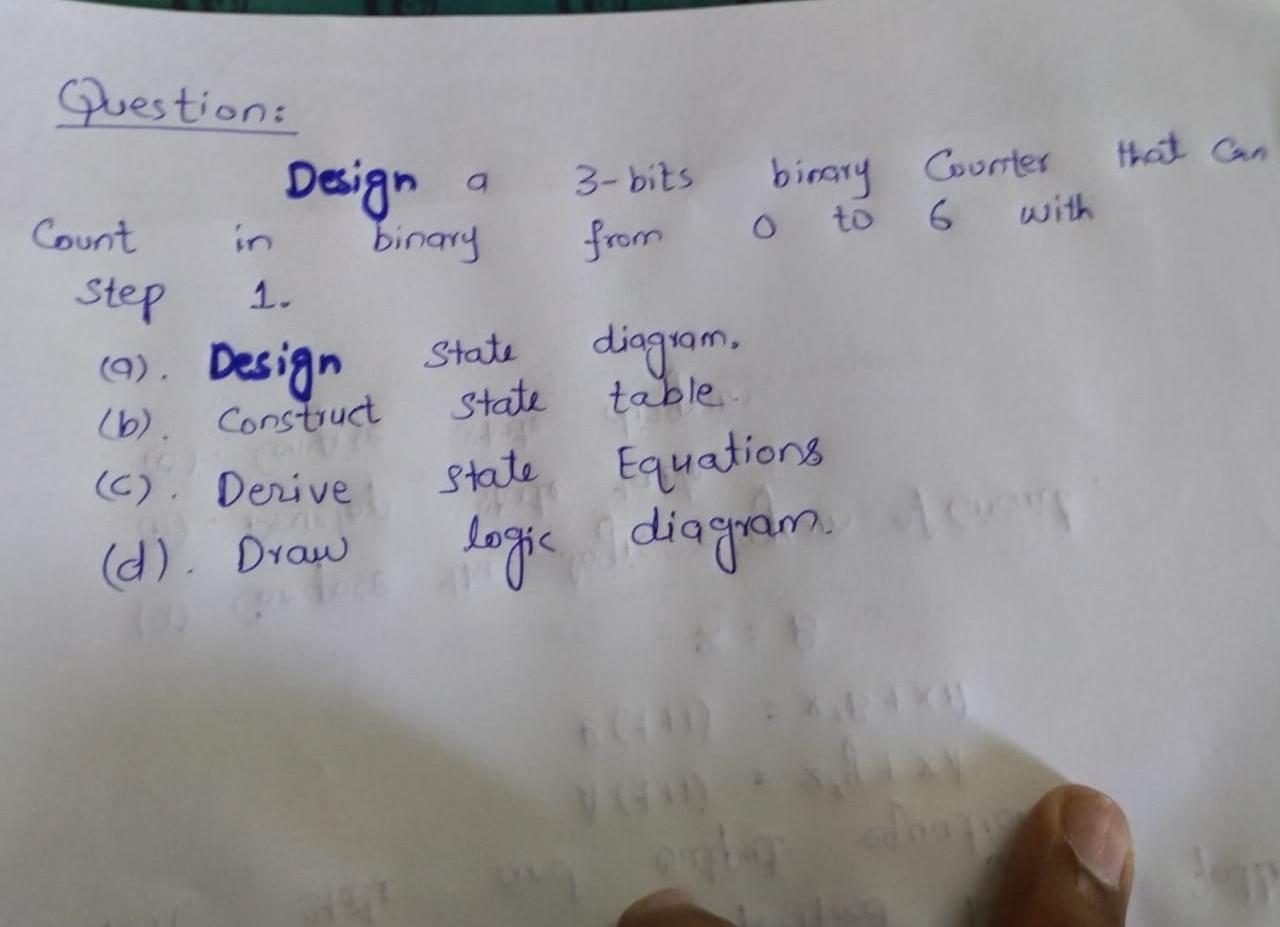 Question:
Design a 3-bits binary Counter that Can
Count in binary from 0 to 6 with
Step 1.
(a). Design State diagram.
(b). Construct State table.
(c). Derive State Equations
(d). Draw logic diagram.